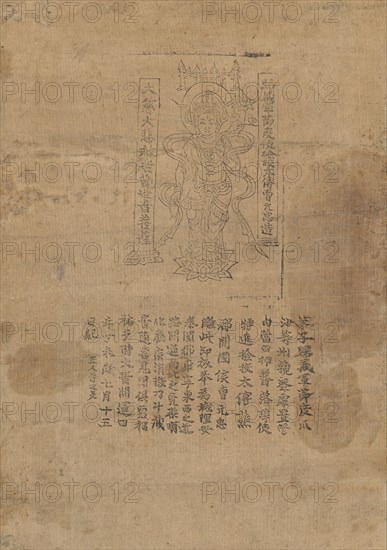 歸義軍節度使檢校太傅曹元忠造
大慈大悲救苦觀世音菩薩
弟子歸義軍節度瓜
沙等州觀察處置管
內營田押蕃落等使
特進檢校太傅譙
郡開國侯曹元忠
雕此印板奉為城隍安
泰闔郡康寧東西之道
路開通南北之兇渠順
化癘疾消散刁斗藏
音隨喜見聞俱霑福
祐于時大晉開運四
年丁未歲七月十五
日紀 匠人雷延美
PHOTO12